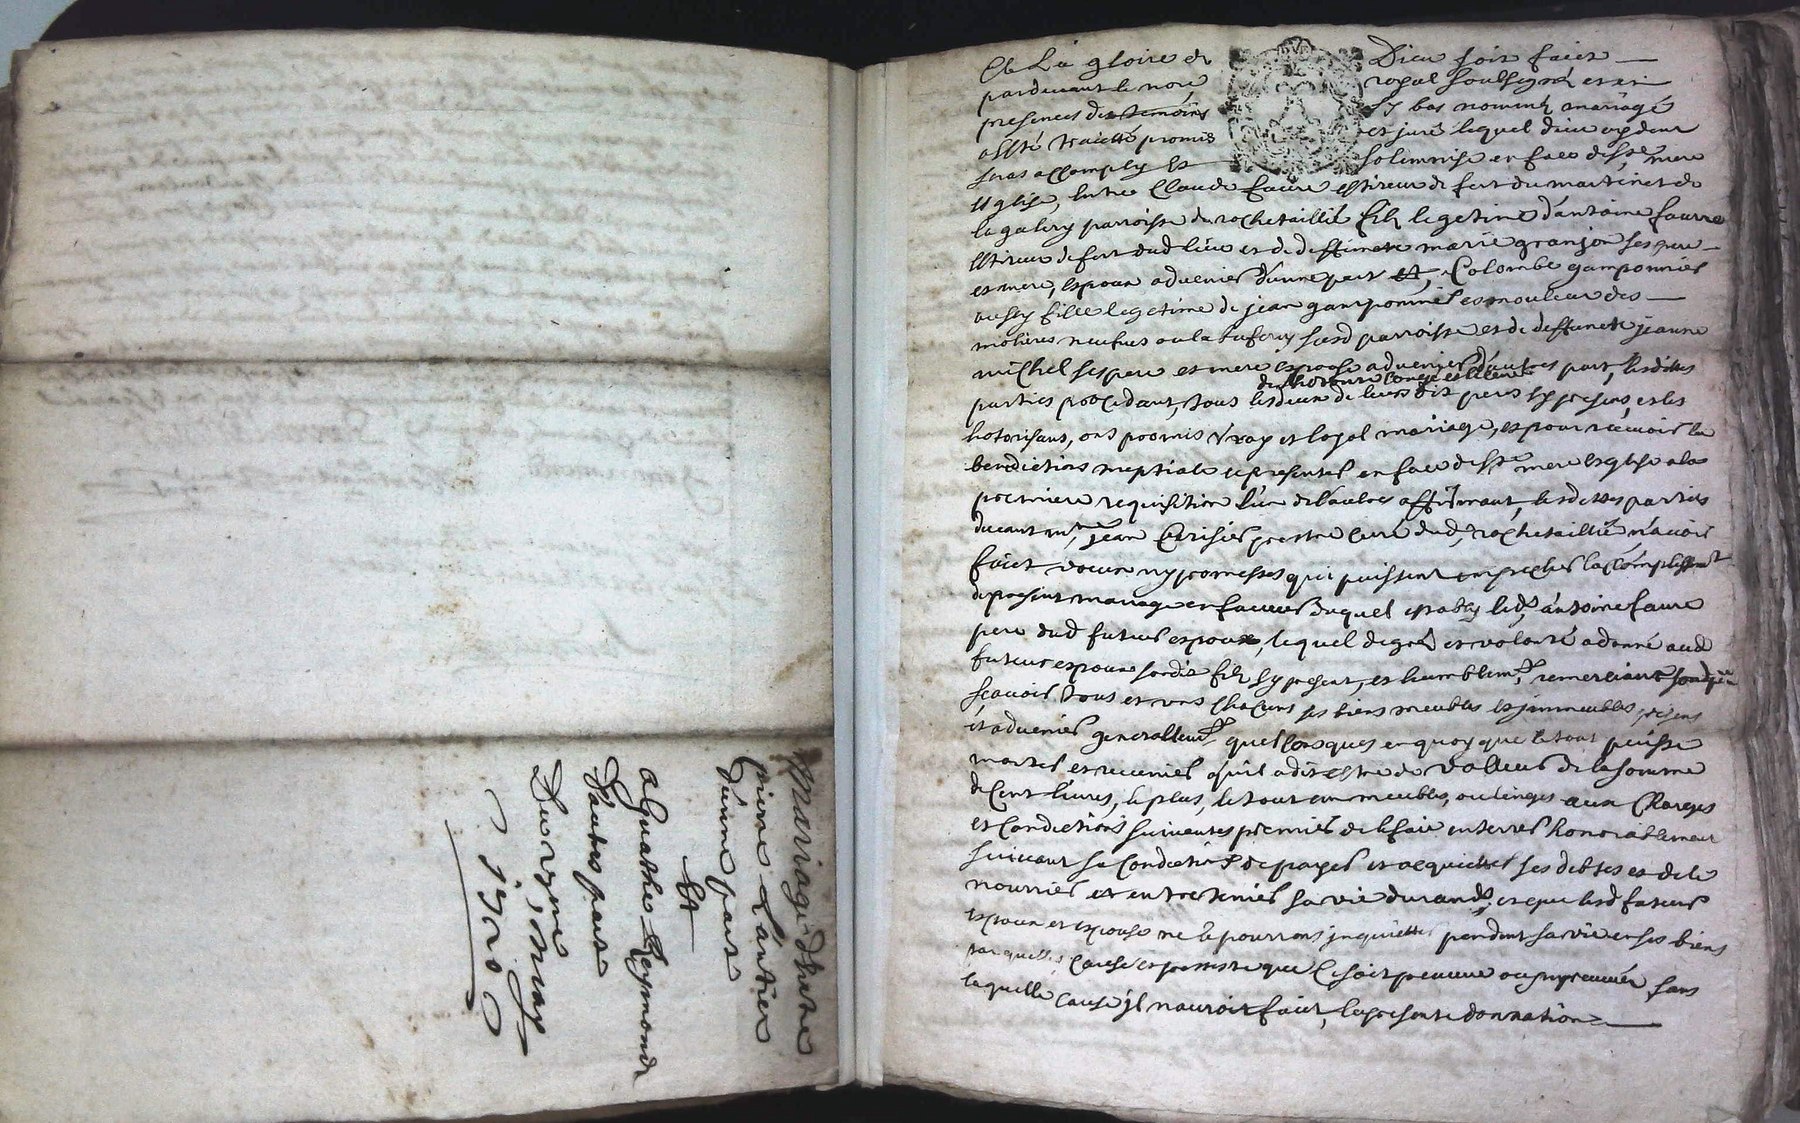 Mariage d'entre
pierre L'antier
d'unne part
Et
aguathe Reymond
d'autre part
Du 25me may
1710
A La gloire de Dieu soit faict
pardevant le nore royal soubsigné et en
presences des temoins sy bas nommés mariage
a esté traicté promis et juré lequel dieu aydant
seras accomply et solemnise en face de ste mere
Esglise, Entre Claude faure estireur de fert du martinet de
la galery parroisse du rochetaillié filz legetime d'antoine faurre
Estireur de fert dud lieu et de deffuncte marie granjon ses pere
et mere, espoux advenier d'unne part et, Colombe gamponnier
aussy fille legetime de jean gamponnier esmouleur des
molieres neufves ou la susd parroisse et de deffuncte jeanne
michel ses pere et mere espouse advenier d'autres part, lesdittes
de l'hotorité congé et licence
parties procedant, tous lesdeux de leurs dit peres sy presens, et les
hotorisans, ont promis vray et loyal mariage, et pour recevoir la
benediction nuptiale se presenter en face de ste mere Esglise a la
premiere requisition l'un de l'autre affirmant, lesdittes parties
devant mre jean prestre curé dud, rochetaillié n'avoir
faict voeux ny promesses qui puissent empecher l'accomplissemt
du present mariage en faveur duquel estably led antoine faure
pere dud futeur espoux, lequel de gré et volonté a donné aud
futeur espoux sondit filz sy present, et humblemt remerciant sondpere
scavoir tous et uns chacuns ses biens meubles et jmmeubles presens
et advenier generallemt quelconques en quoy que le tout puisse
monter et revenier qu'il a dit estre de valleur de la somme
de cent livres, le plus, le tout en meubles, ou linges aux charges
et condictions suivantes premier de le faire enterrer honorablement
suivant sa condiction de payer et acquitter ses debtes et de le
nourrier et entretenier sa vie durand, et que lesd futeurs
espoux et espouse ne le pourront jnquietter pendant sa vie en ses biens
cause et que ce soit preveue ou jmpreveue sans
laquelle cause jl n'auroit faict, la presente donnation